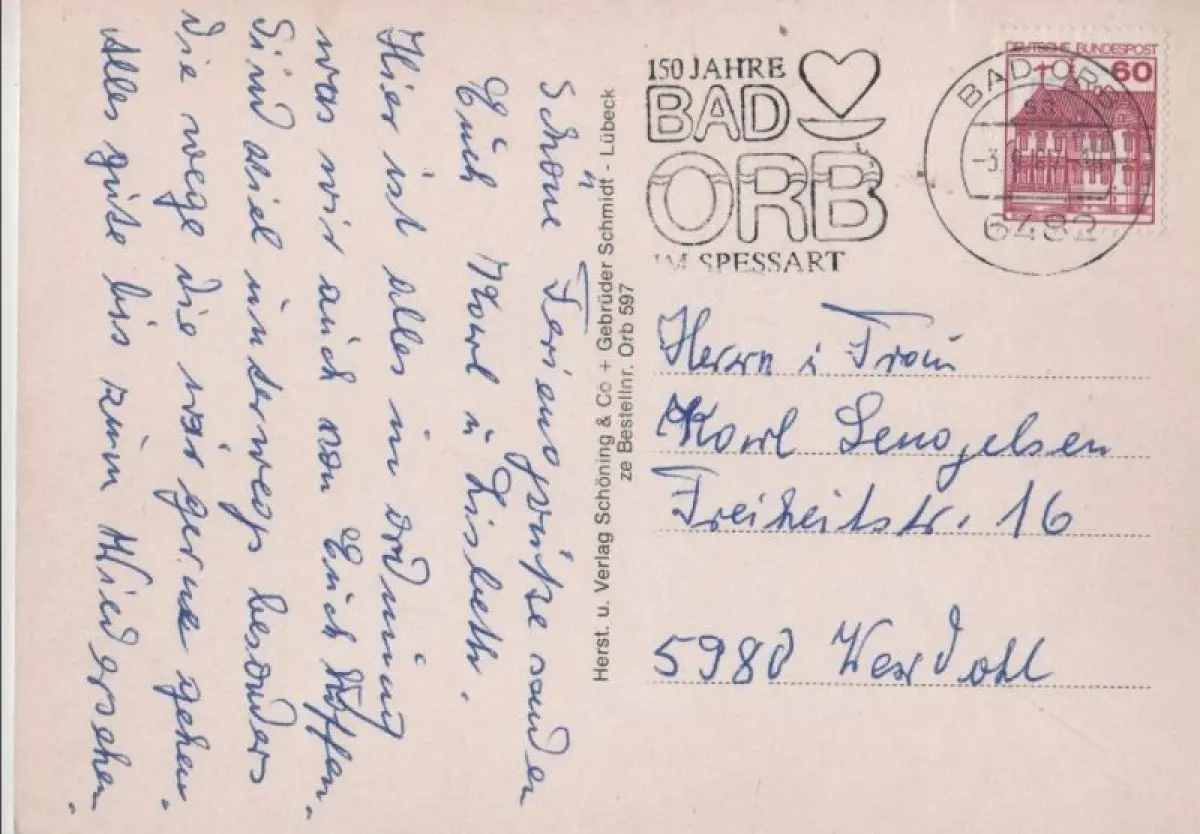 Schöne Feriengrüße senden
Euch Karl u Lisbeth.
Hier ist alles in ordnung
was wir auch von Euch Hoffen.
Sind viel unterwegs besonders
die wege die wir gerne gehen.
Alles gute bis zum Wiedersehen.
Herst. u. Verlag Schöning & Co + Gebrüder Schmidt - Lübeck
ze Bestellnr. Orb 597
150 JAHRE
BAD
ORB
IM SPESSART
DEUTSCHE BUNDESPOST
60
BAD ORB
sa
6482
Herrn u Frau
Karl Sengelsen
Freiheitstr. 16
5980 Werdohl